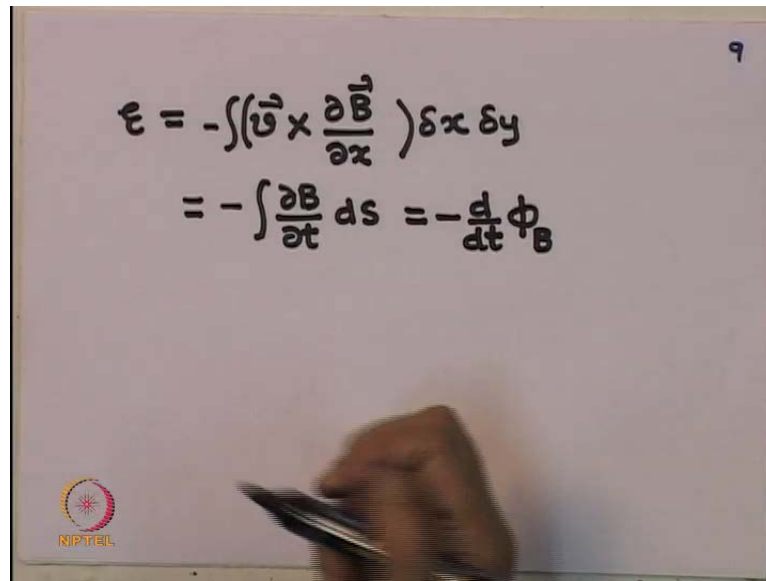 9
ε = -∫(v⃗ × ∂B⃗/∂x) δx δy
= -∫ ∂B/∂t dS = -d/dt ϕ_B
NPTEL